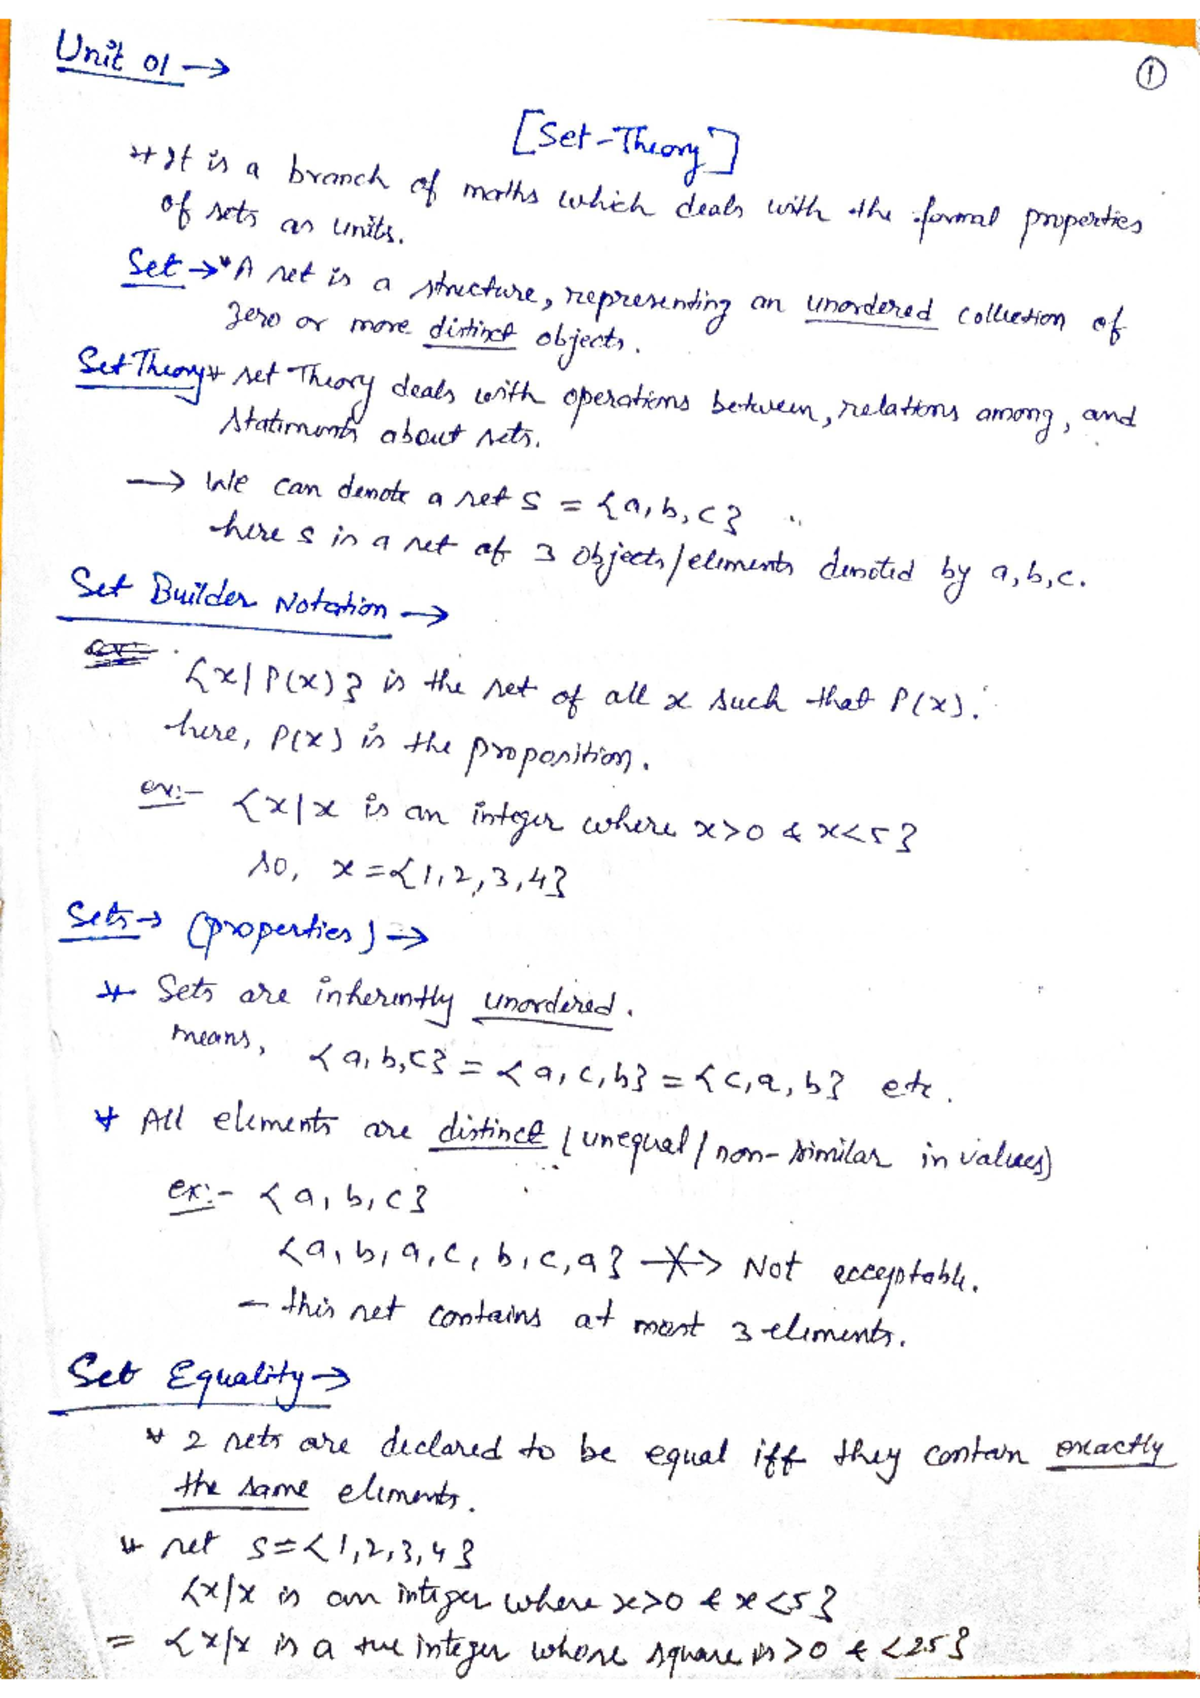 Unit 01 →
①
[Set-Theory]
* It is a branch of maths which deals with the formal properties
of sets as units.
Set → * A set is a structure, representing an unordered collection of
zero or more distinct objects.
Set Theory * set Theory deals with operations between, relations among, and
statements about sets.
→ We can denote a set S = {a, b, c}
here S is a set of 3 objects/elements denoted by a, b, c.
Set Builder Notation →
{x | P(x)} is the set of all x such that P(x).
here, P(x) is the proposition.
ex:- {x | x is an integer where x>0 & x<5}
so, x = {1, 2, 3, 4}
Sets → (properties) →
* Sets are inherently unordered.
means, {a, b, c} = {a, c, b} = {c, a, b} etc.
* All elements are distinct (unequal/non-similar in values)
ex:- {a, b, c}
{a, b, a, c, b, c, a} -X-> Not acceptable.
- this set contains at most 3 elements.
Set Equality →
* 2 sets are declared to be equal iff they contain exactly
the same elements.
* set S = {1, 2, 3, 4}
{x/x is an integer where x>0 & x<5}
= {x/x is a +ve integer whose square is >0 & <25}